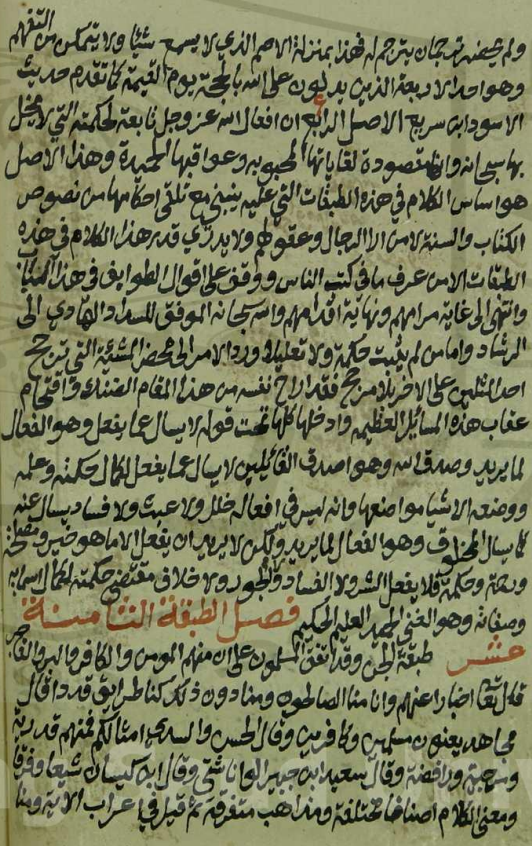 ولم يحضره ترجمان يترجم له فهذا بمنزلة الاصم الذي لا يسمع شيئا ولا يتمكن من التفهم
وهو احد الاربعة الذين يدلون على الله بالحجة يوم القيمة كما تقدم حديث
الاسود ابن سريع الاصل الرابع ان افعال الله عز وجل تابعة لحكمته التي لا يخل
بها سبحانه وانها مقصودة لغاياتها المحبوبة وعواقبها الحميدة وهذا الاصل
هو اساس الكلام في هذه الطبقات التي عليه ينبني مع تلقي احكامها من نصوص
الكتاب والسنة لا من الاراء الرجال وعقولهم ولا يدري قدر هذا الكلام في هذه
الطبقات الا من عرف ما في كتب الناس ووقف على اقوال الطوايف في هذا الباب
وانتهى الى غاية مرامهم ونهاية اقدامهم والله سبحانه الموفق للسداد والهادي الى
الرشاد واما من لم يثبت حكمة ولا تعليلا ورد الامر الى محض المشيئة التي ترجح
احد المثلين على الاخر بلا مرجح فقد اراح نفسه من هذا المقام الضنك واقتحام
عقاب هذه المسائل العظيمه وادخلها كلها تحت قوله لا يسال عما يفعل وهو الفعال
لما يريد وصدق الله وهو اصدق القائلين لا يسال عما يفعل لكمال حكمته وعلمه
ووضعه الاشيا مواضعها وانه ليس في افعاله خلل ولا عبث ولا فساد يسال عنه
كما يسال المخلوق وهو الفعال لما يريد ولكن لا يريد ان يفعل الا ما هو خير ومصلحة
ورحمة وحكمة فلا يفعل الشر ولا الفساد والجور ولا خلاف مقتضى حكمته لكمال اسمائه
وصفاته وهو الغني الحميد العليم الحكيم فصل الطبقة الثامنة
عشر طبقة الجن وقد اتفق المسلمون على ان منهم المومن والكافر والبر والفاجر
قال تعالى اخبارا عنهم وانا منا الصالحون ومنا دون ذلك كنا طرايق قددا قال
مجاهد يعنون مسلمين وكافرين وقال الحسن والسدي امثالكم فمنهم قدرية
ومرجية ورافضة وقال سعيد ابن جبير الوانا شتى وقال ابن كيسان شيعا وفرقا
ومعنى الكلام اصنافا مختلفة ومذاهب متفرقة ثم قيل في اعراب الاية ومنا